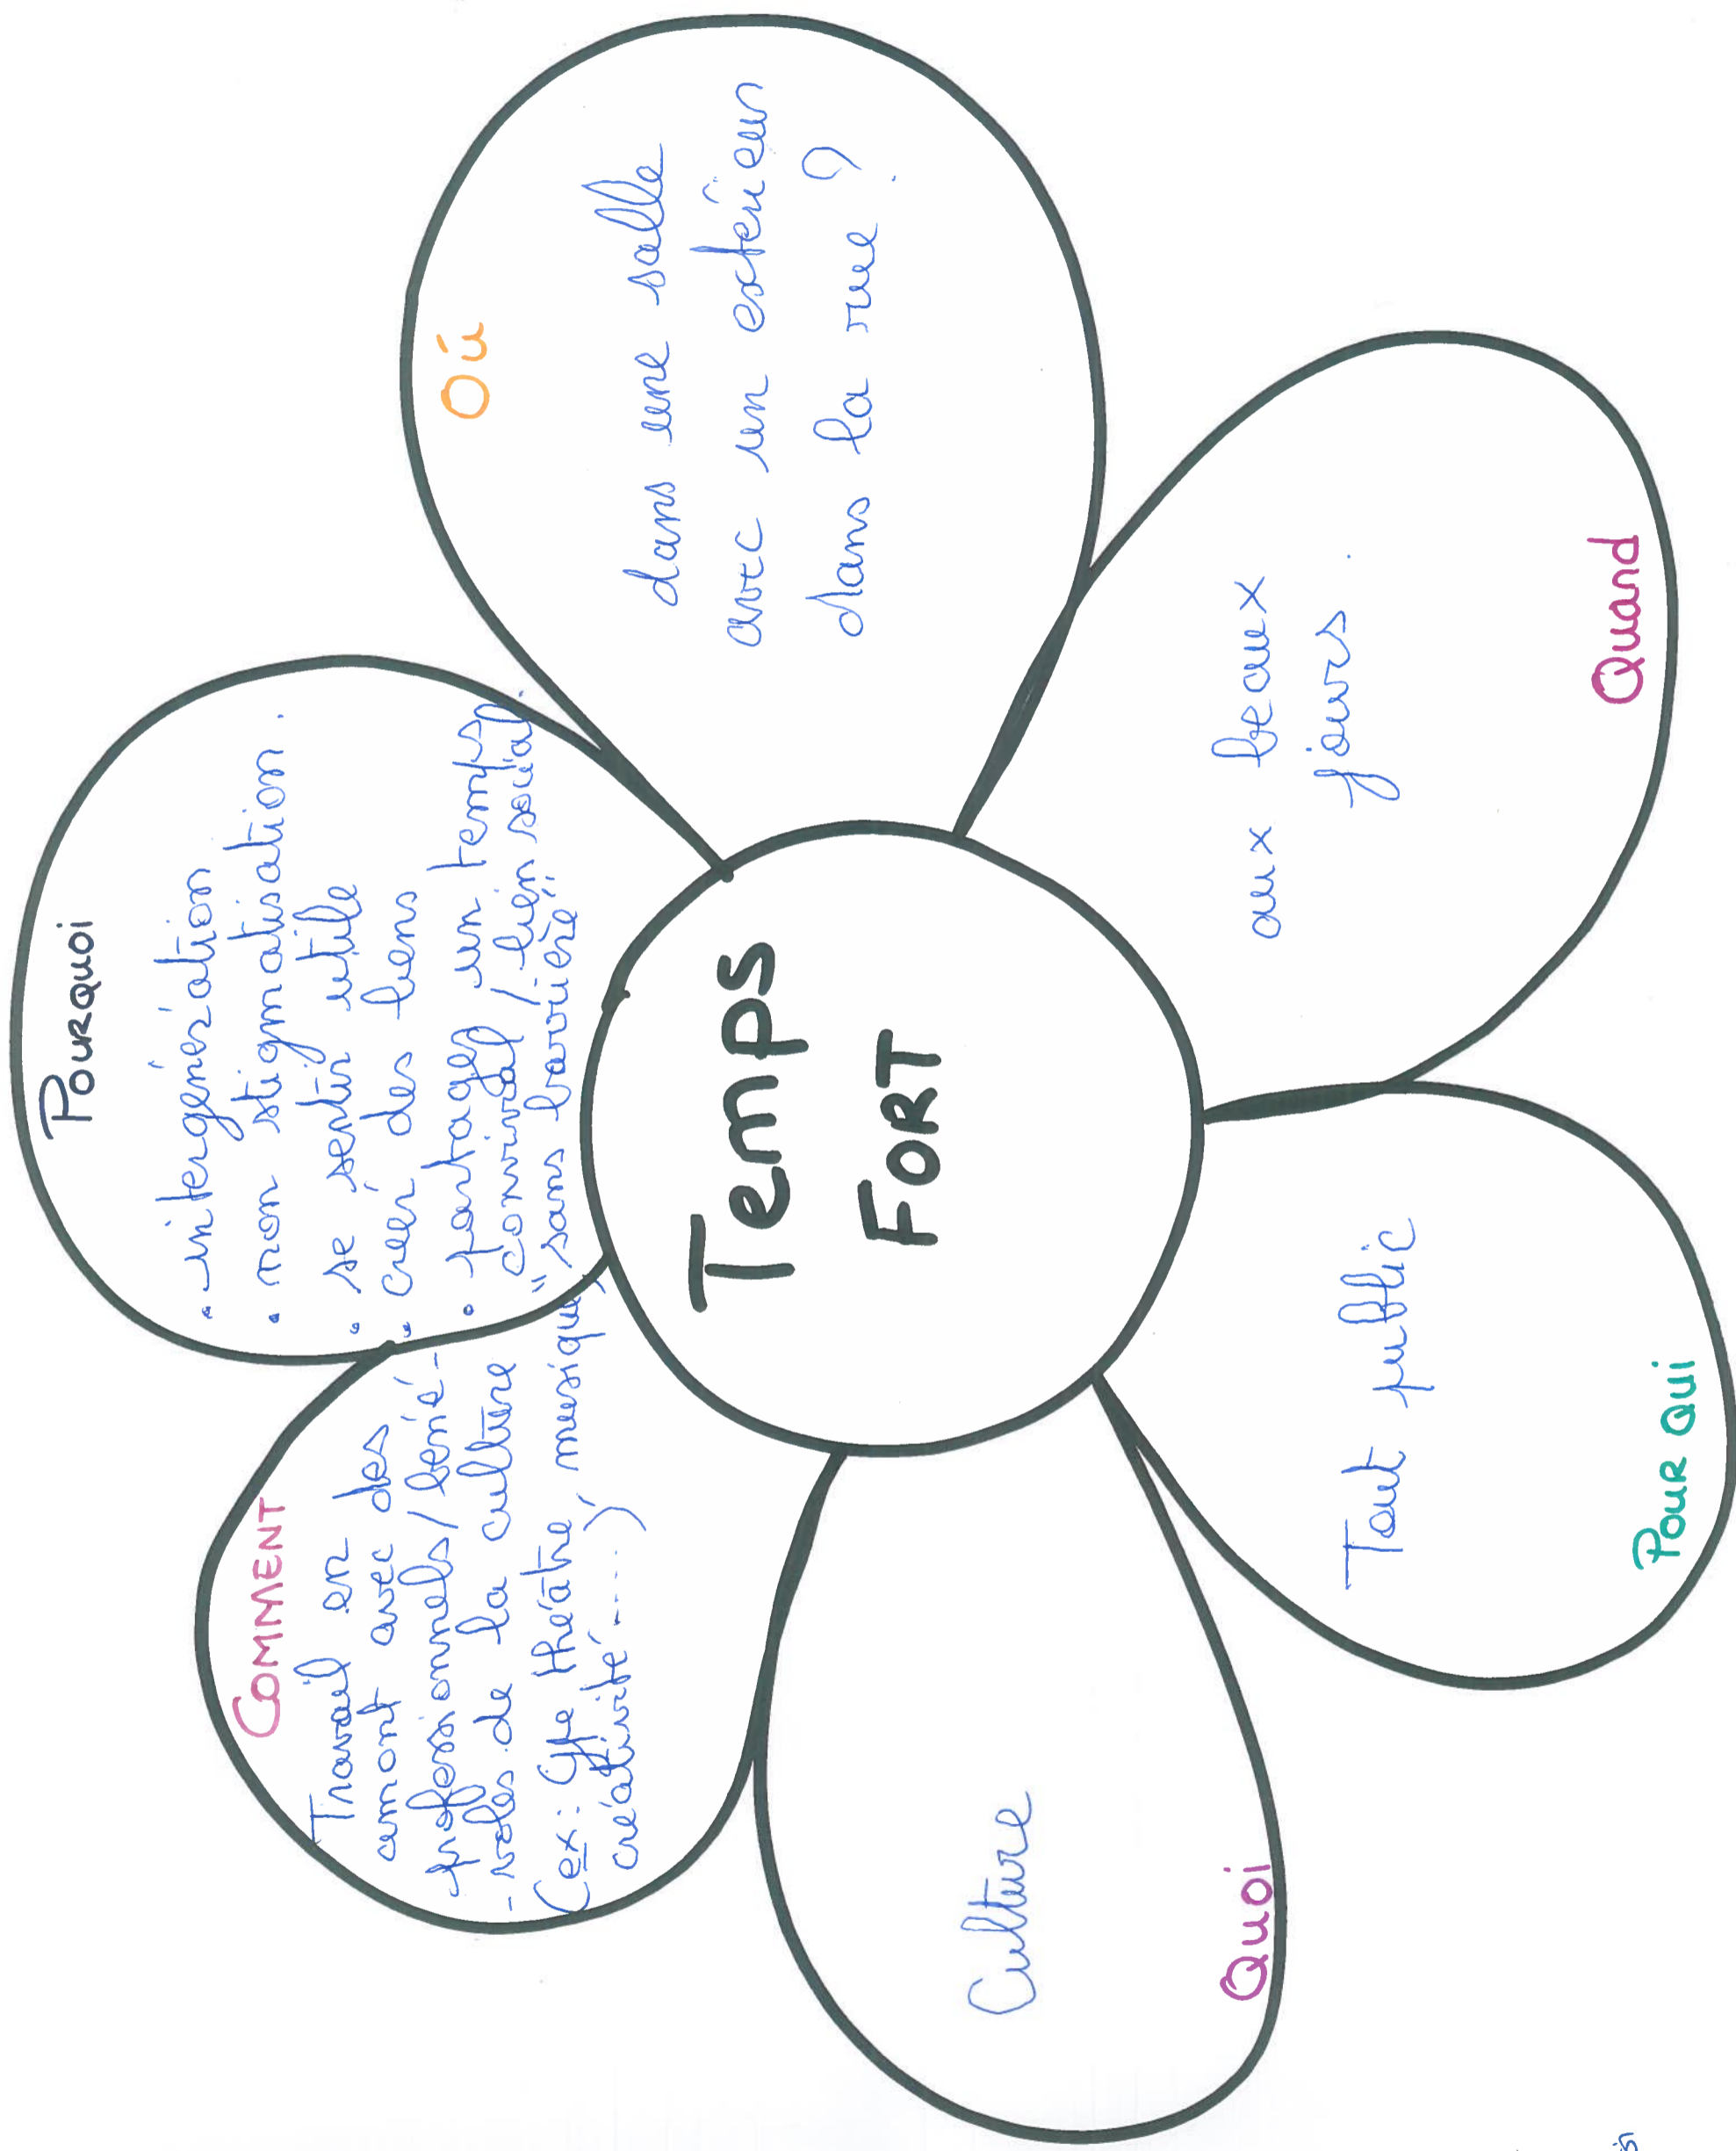 Temps
FORT
POURQUOI
• intergénération
• non stigmatisation.
• se sentir utile
• créer des liens
• partager un temps
convivial / lien social.
"sans barrière"
Où
dans une salle
avec un extérieur
dans la rue ?
Quand
aux beaux
jours.
POUR QUI
Tout public
Quoi
Culture
COMMENT
Travail en
amont avec des
professionnels / béné-
-voles de la culture
(ex: Cie théâtre, musique,
créativité ..... )